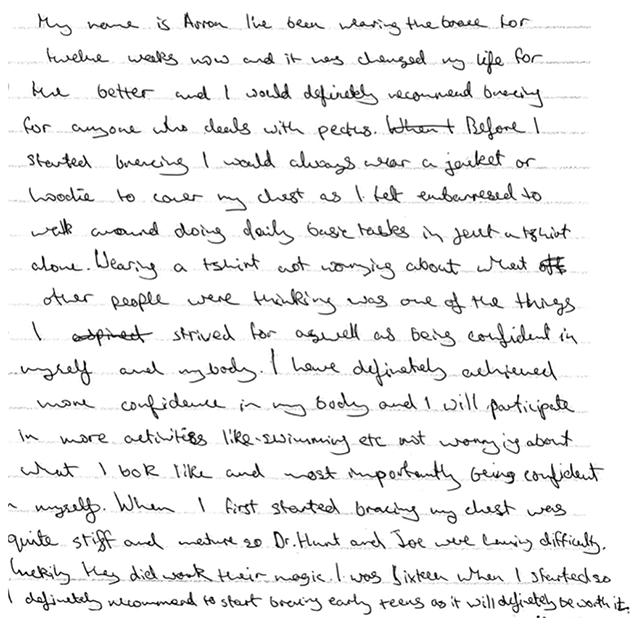 My name is Arron I've been wearing the brace for
twelve weeks now and it has changed my life for
the better and I would definetely recommend bracing
for anyone who deals with pectus. When I Before I
started bracing I would always wear a jacket or
hoodie to cover my chest as I felt embarresed to
walk around doing daily basic tasks in just a tshirt
alone. Wearing a tshirt not worrying about what
other people were thinking was one of the things
I aspired strived for aswell as being confident in
myself and my body. I have definetely achieved
more confidence in my body and I will participate
in more activities like swimming etc not worrying about
what I look like and most importantly being confident
myself. When I first started bracing my chest was
quite stiff and mature so Dr. Hunt and Joe were having difficulty.
luckily they did work their magic. I was sixteen when I started so
I definetely recommend to start bracing early teens as it will definetely be worth it.